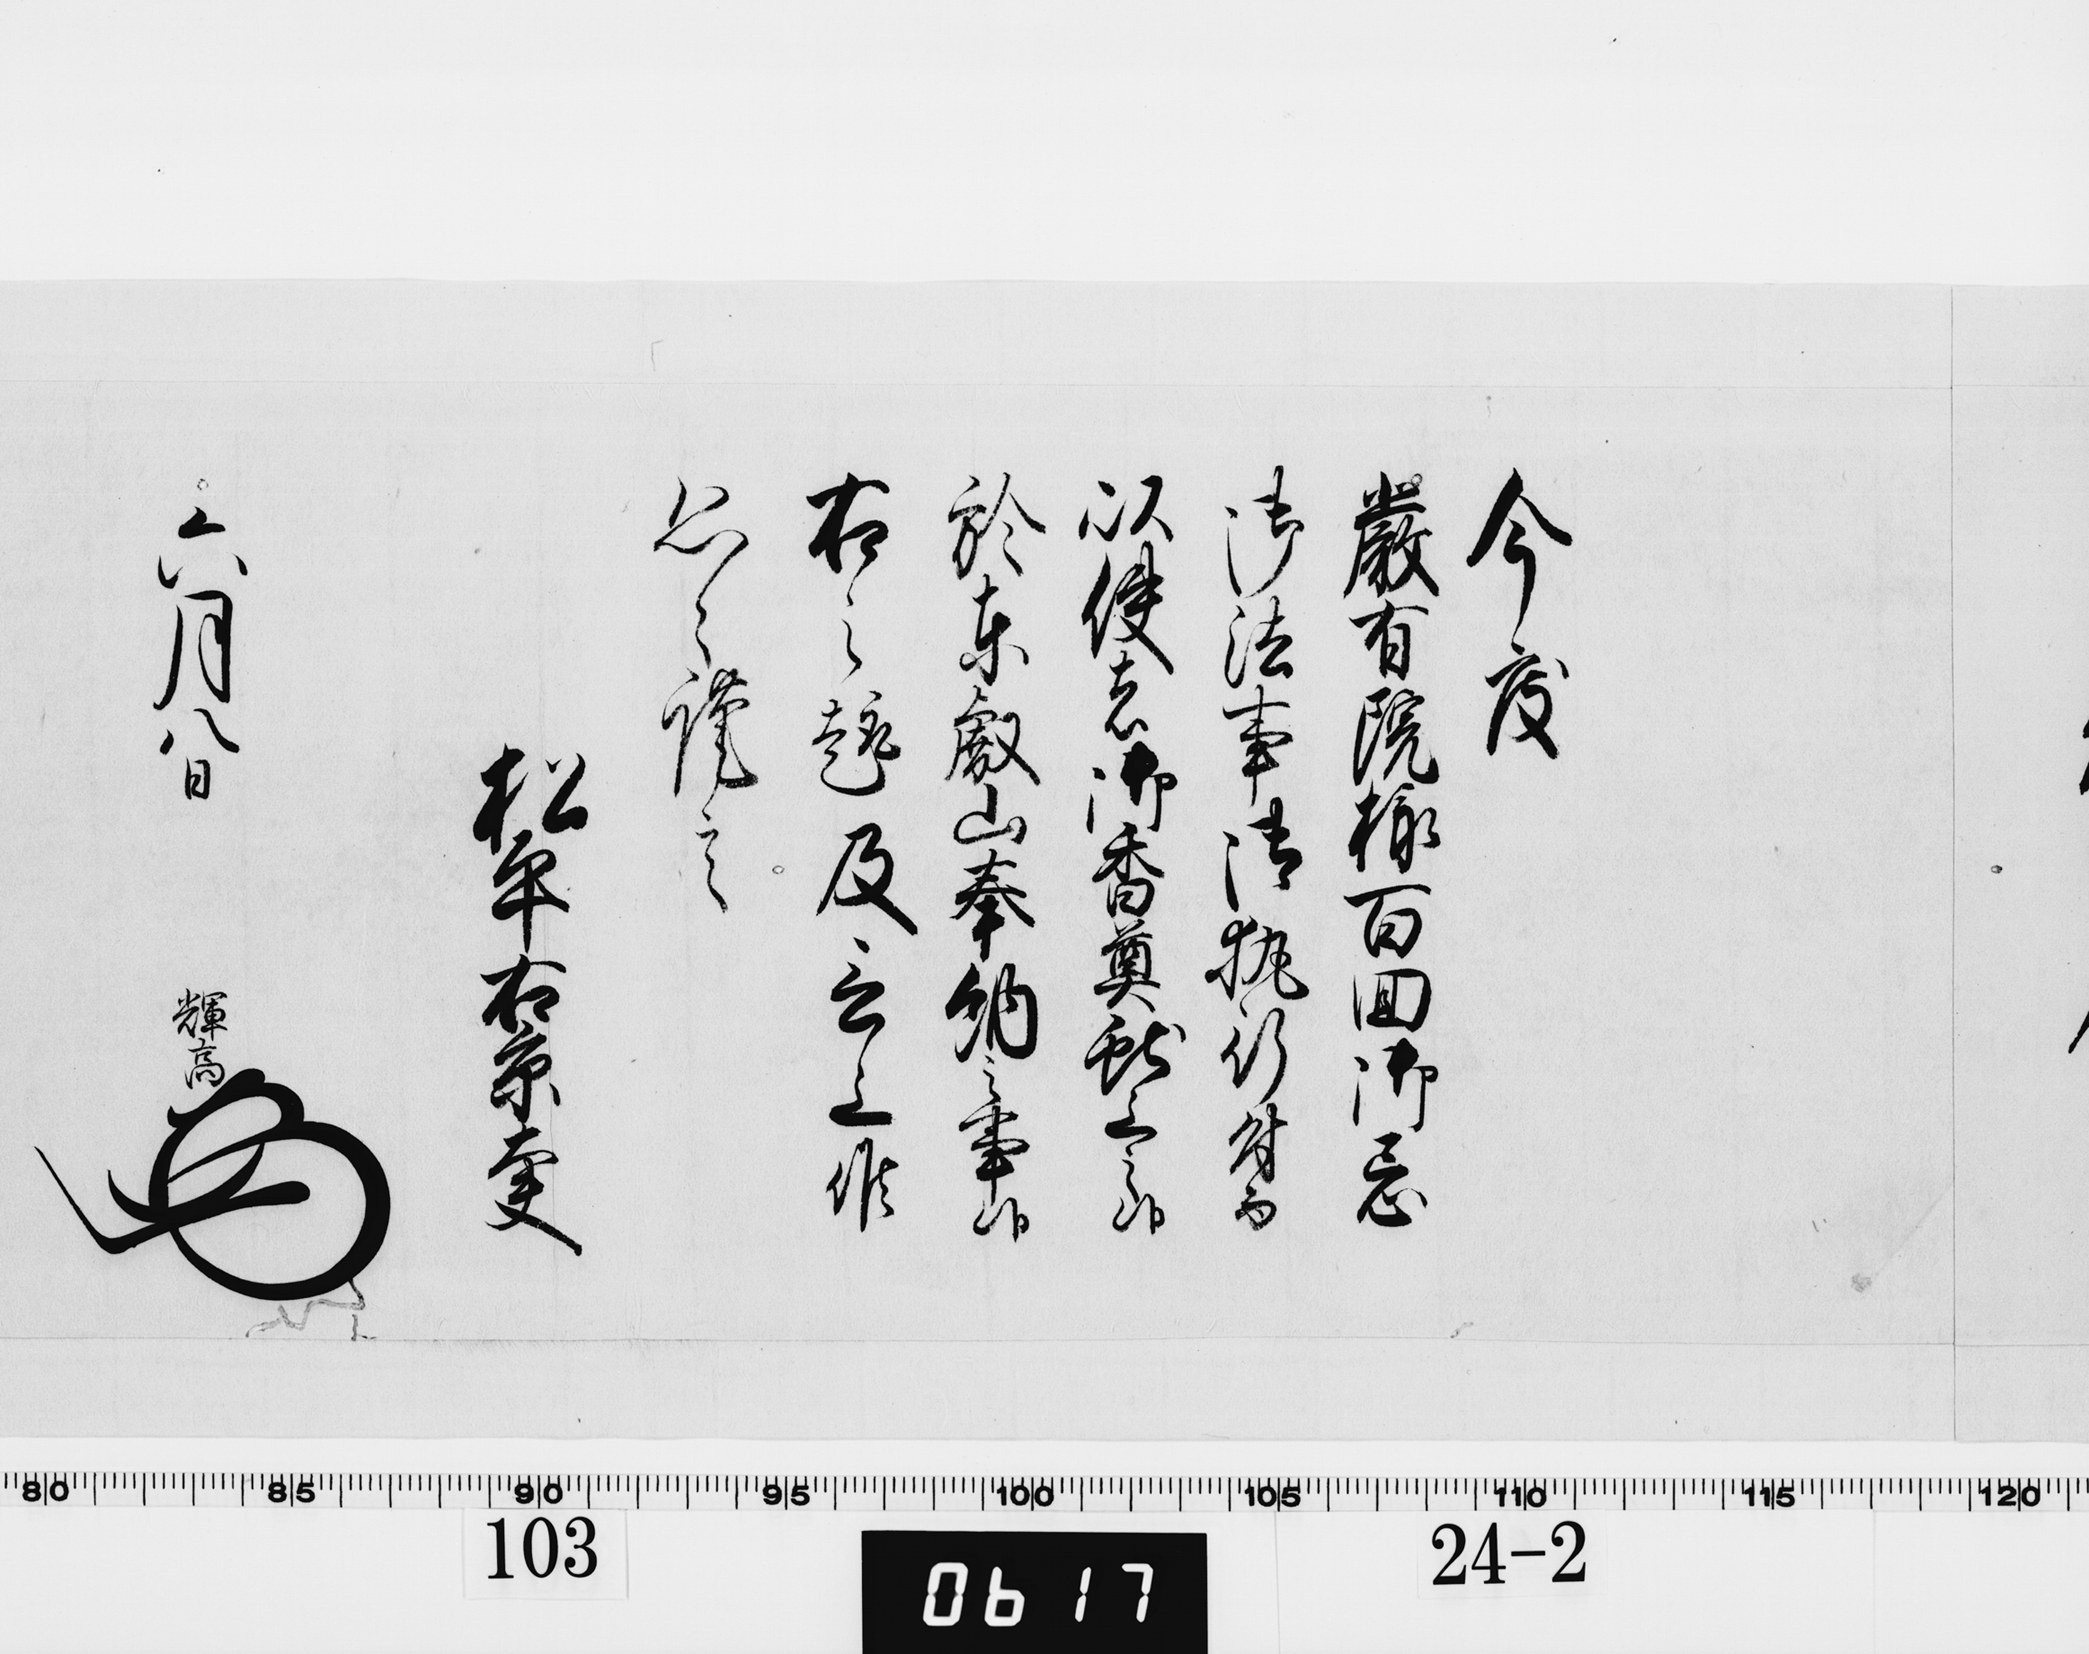 今度
嚴有院様百回御忌
御法事御執行付而
以使者御香奠献上之
於東叡山奉納之事
右之趣及言上候
恐々謹言
松平右京大夫
六月八日
輝高
80 85 90 95 100 105 110 115 120
103
0617
24-2